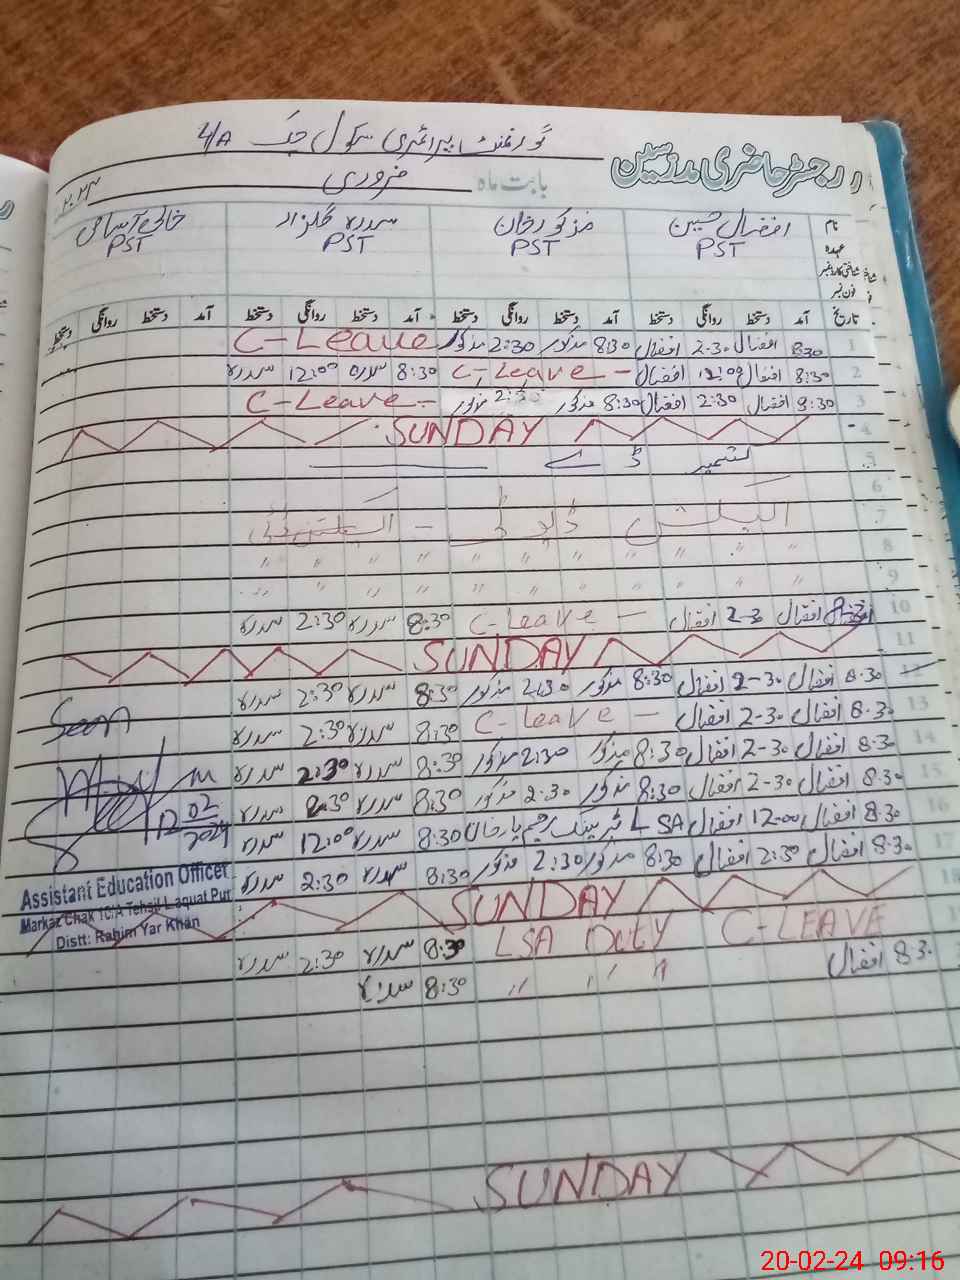 گورنمنٹ پرائمری سکول چک 4/A
رجسٹر حاضری مدرسین
بابت ماہ فروری
نام افضال حسین مذکور خان سدرہ گلزار خالی آسامی
عہدہ PST PST PST PST
شناختی کارڈ نمبر
فون نمبر
تاریخ آمد دستخط روانگی دستخط آمد دستخط روانگی دستخط آمد دستخط روانگی دستخط آمد دستخط روانگی دستخط
1 8:30 افضال 2-30 افضال 8:30 مذکور 2:30 مذکور C-Leave
2 8:30 افضال 12:00 افضال C-Leave - 8:30 سدرہ 12:00 سدرہ
3 8:30 افضال 2:30 افضال 8:30 مذکور 2:30 مذکور C-Leave -
4 SUNDAY
5 کشمیر ڈے
6
7 الیکشن ڈیوٹی - الیکشن ڈیوٹی
8 " " " " " " " " "
9 " " " " " " " "
10 افضال 2-30 افضال C-Leave - 8:30 سدرہ 2:30 سدرہ
11 SUNDAY
12 8:30 افضال 2-30 افضال 8:30 مذکور 2:30 مذکور 8:30 سدرہ 2:30 سدرہ
13 8:30 افضال 2-30 افضال C-Leave - 8:30 سدرہ 2:30 سدرہ Seen
14 8:30 افضال 2-30 افضال 8:30 مذکور 2:30 مذکور 8:30 سدرہ 2:30 سدرہ
15 8:30 افضال 2-30 افضال 8:30 مذکور 2:30 مذکور 8:30 سدرہ 2:30 سدرہ 12 02 2024
16 8:30 افضال 12:00 افضال LSA ٹریننگ رحیم یار خان 8:30 سدرہ 12:00 سدرہ
17 8:30 افضال 2:30 افضال 8:30 مذکور 2:30 مذکور 8:30 سدرہ 2:30 سدرہ
Assistant Education Officer
Markaz Chak 10/A Tehsil Liaquat Pur
Distt: Rahim Yar Khan
18 SUNDAY
C-LEAVE LSA Duty 8:30 سدرہ 2:30 سدرہ
8:30 افضال " " " 8:30 سدرہ
SUNDAY
20-02-24 09:16